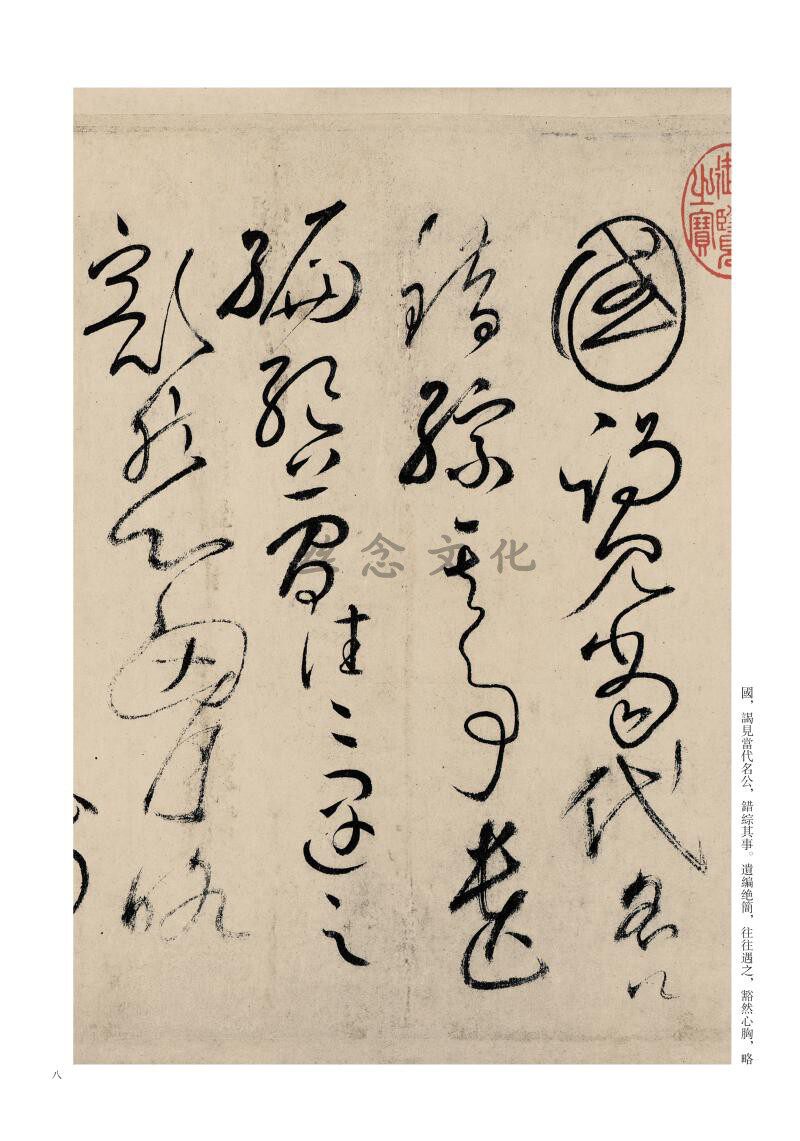 國謁見當代名公
錯綜其事遺
編绝簡往〻遇之
豁然心胸略
御覽之寶
國，謁見當代名公，錯綜其事。遺編绝簡，往往遇之，豁然心胸，略
念文化
八